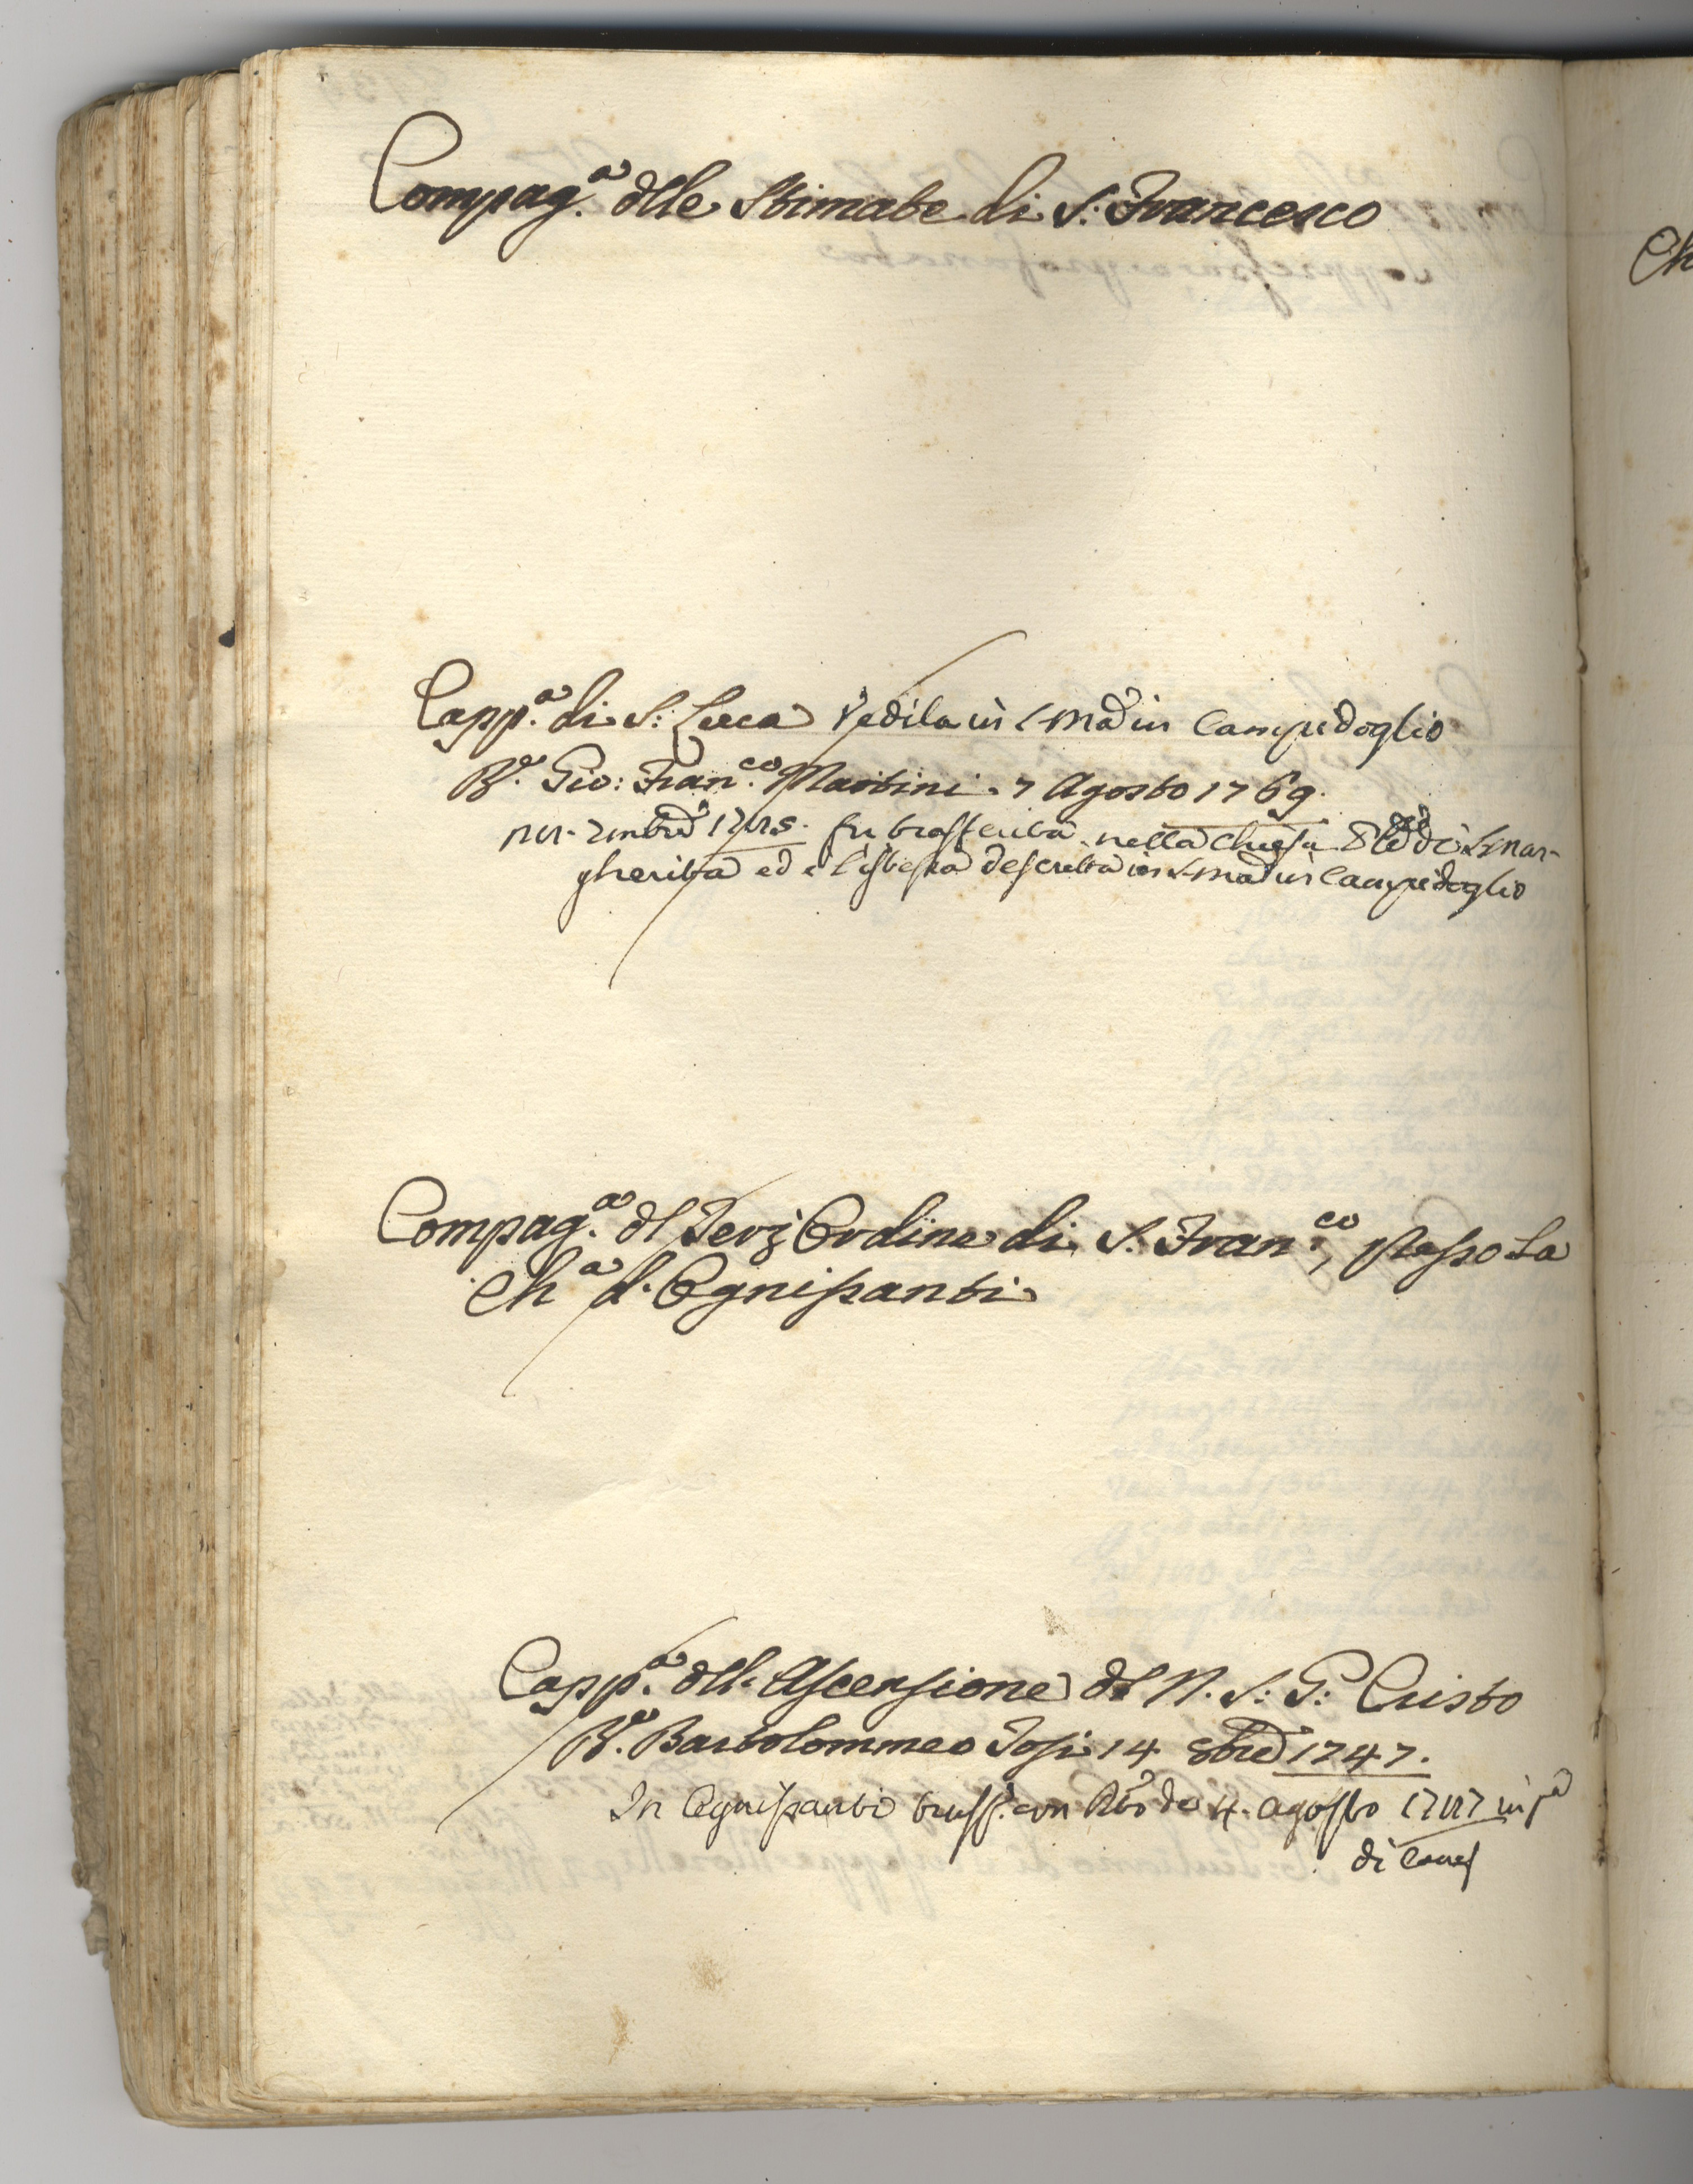 Compag.ª dlle Stimate di S: Francesco
Capp.ª di S: Luca Vedila in S Mã in Campidoglio
Re. Gio: Fran.co Martini. 7 Agosto 1769.
fu trasferita nella Chiesa di S Mar-
gherita ed è l'istessa descritta in S Mã in Campidoglio
Compag.ª dl Terz Ordine di S. Fran.co, presso La
Ch.ª d. Ognisanti
Capp.ª dell. Ascensione dl N. S: G: Cristo
Re. Bartolommeo Tosi 14 8bre 1747.
In Ognissanti trasf. con 4. agosto
di